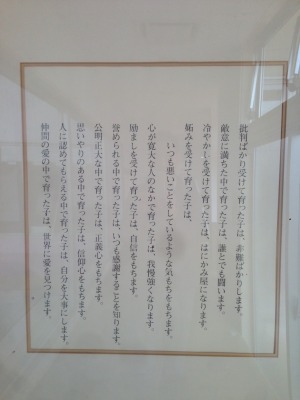 批判ばかり受けて育った子は、非難ばかりします。
敵意に満ちた中で育った子は、誰とでも闘います。
冷やかしを受けて育った子は、はにかみ屋になります。
妬みを受けて育った子は、
いつも悪いことをしているような気もちをもちます。
心が寛大な人のなかで育った子は、我慢強くなります。
励ましを受けて育った子は、自信をもちます。
誉められる中で育った子は、いつも感謝することを知ります。
公明正大な中で育った子は、正義心をもちます。
思いやりのある中で育った子は、信仰心をもちます。
人に認めてもらえる中で育った子は、自分を大事にします。
仲間の愛の中で育った子は、世界に愛を見つけます。